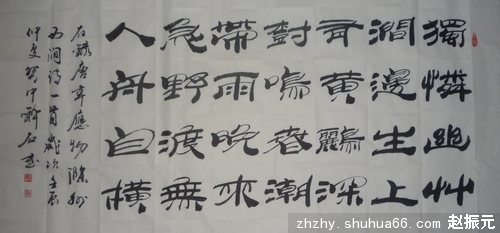 獨憐幽艸
澗邊生上
有黃鸝深
樹鳴春潮
帶雨晚來
急野渡無
人舟自橫
右錄唐韋應物滁州
西澗詩一首歲次壬辰
仲夏
zhzhy.shuhua66.com 赵振元